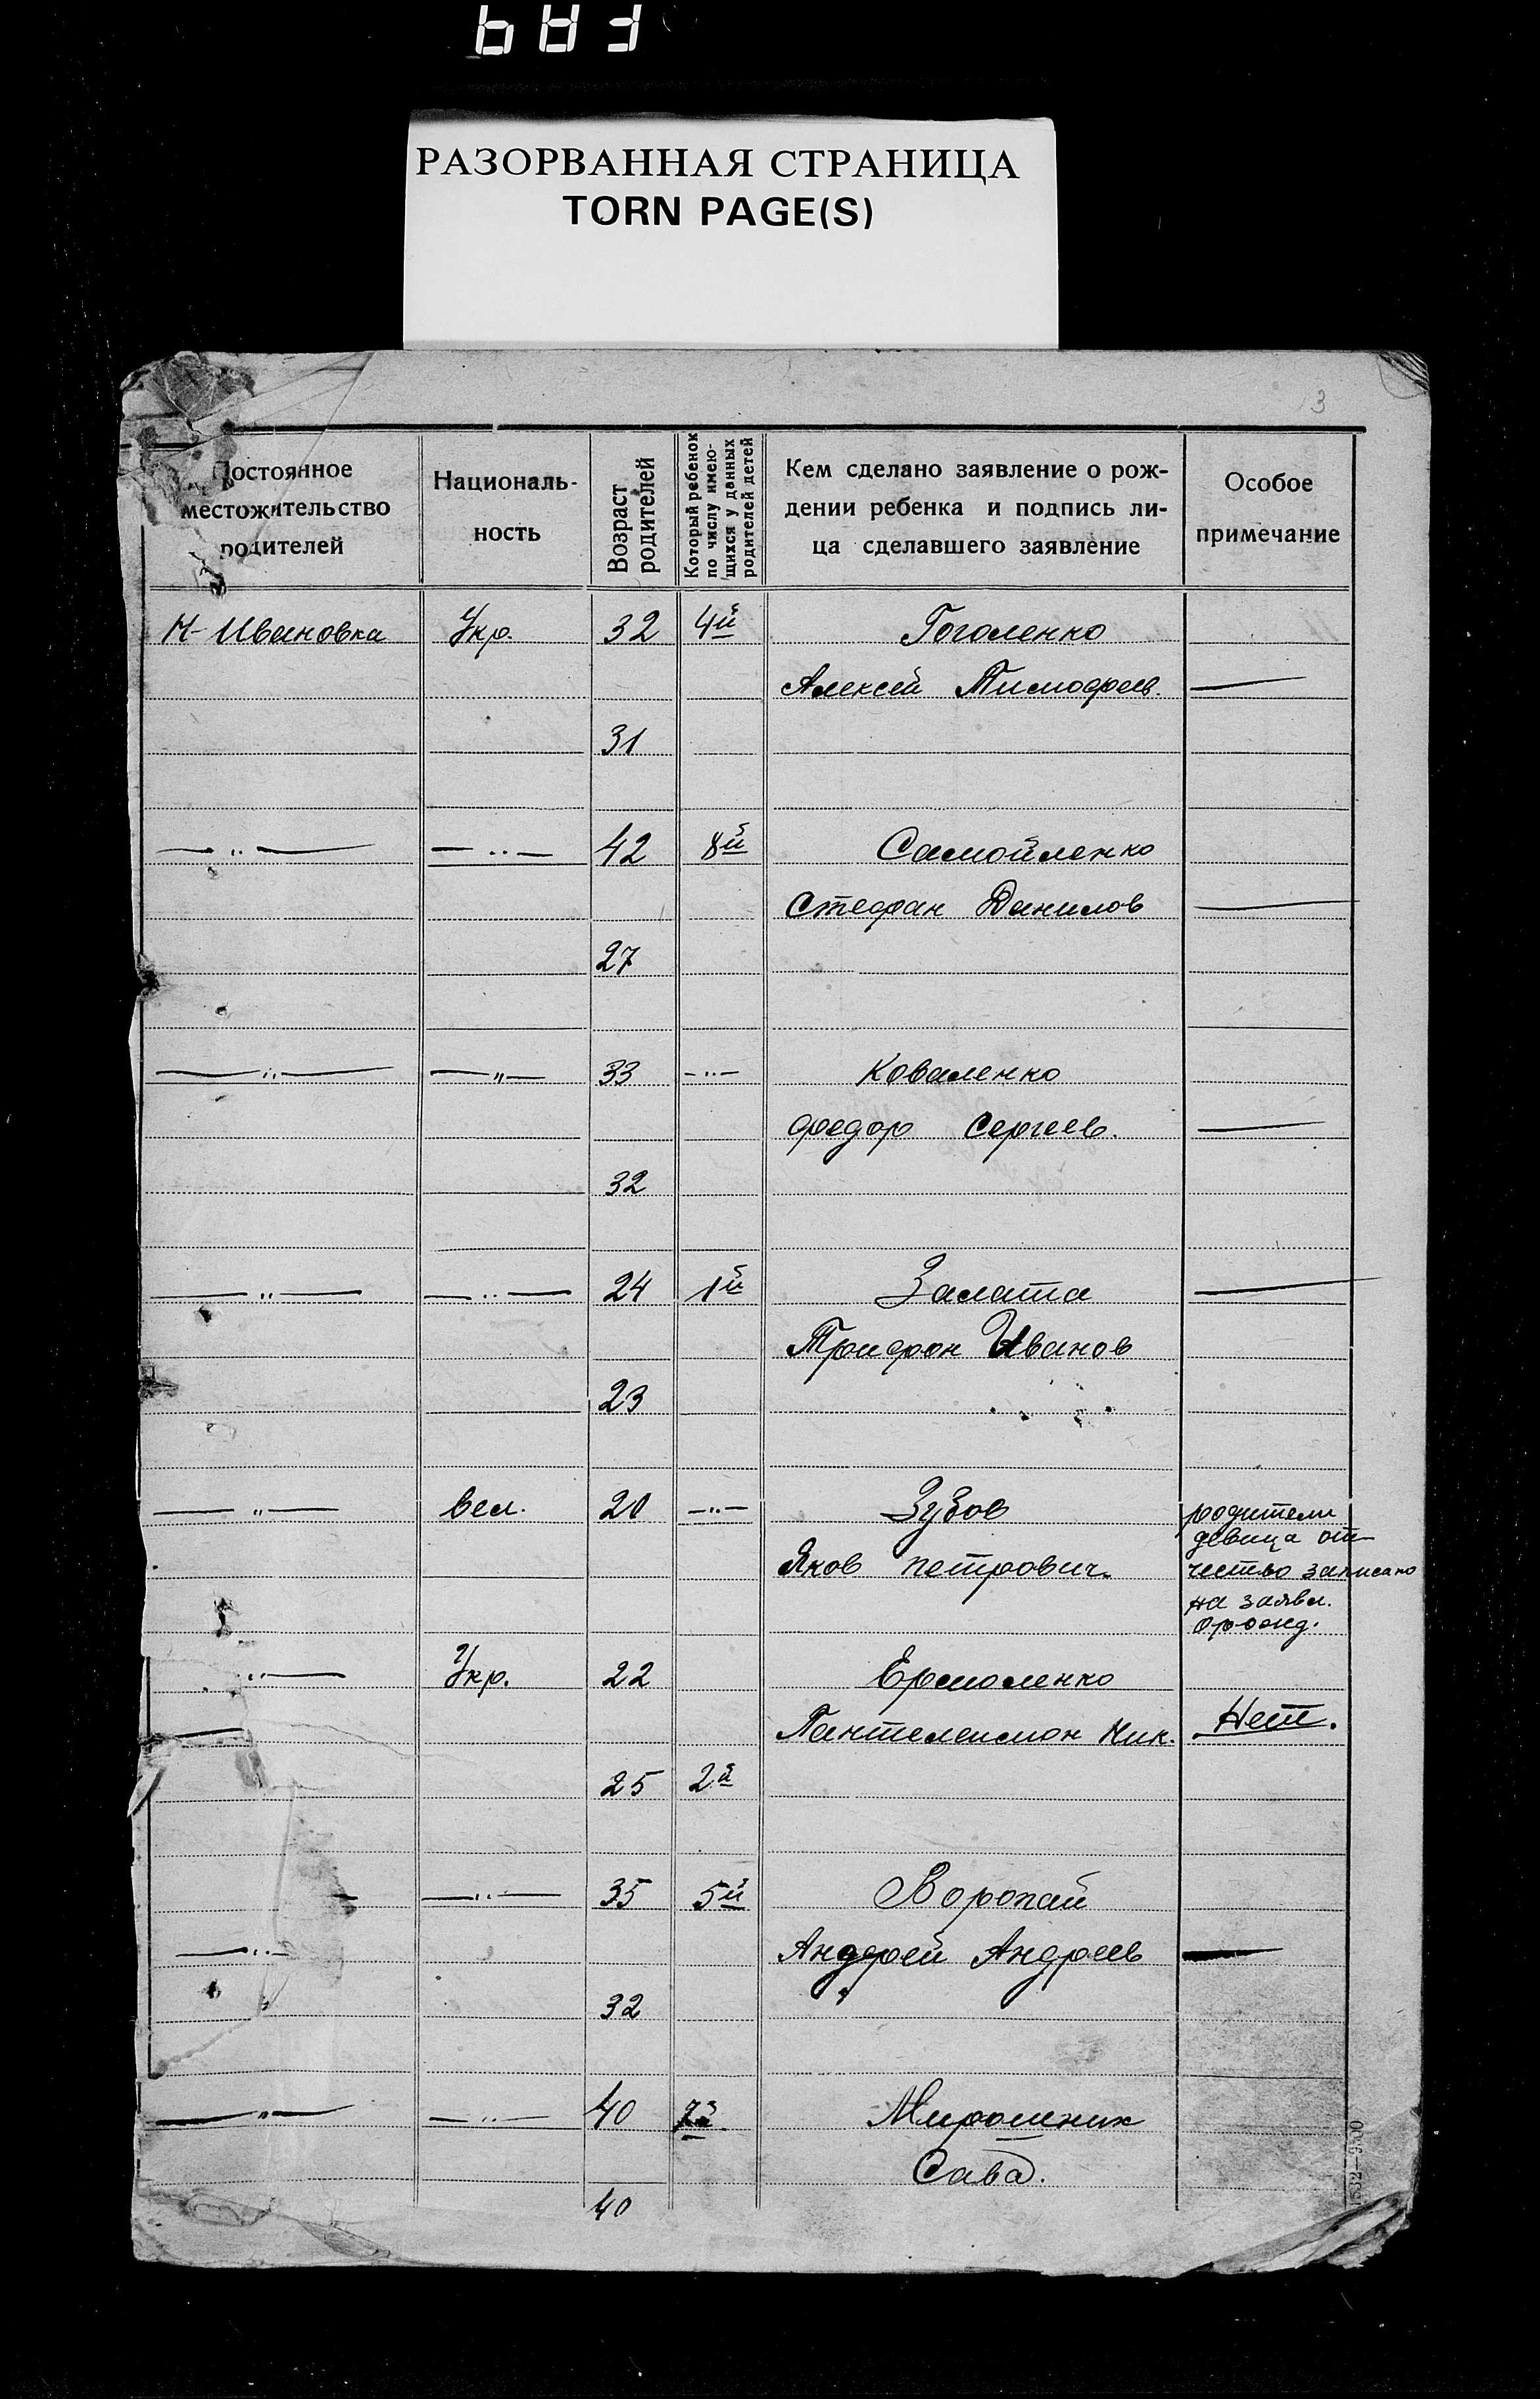 РАЗОРВАННАЯ СТРАНИЦА
TORN PAGE(S)
3
Постоянное
местожительство
родителей
Националь-
ность
Возраст
родителей
Который ребенок
по числу имею-
щихся у данных
родителей детей
Кем сделано заявление о рож-
дении ребенка и подпись ли-
ца сделавшего заявление
Особое
примечание
Н-Ивановка Укр. 32 4й Гоголенко
Алексей Тимофеев. —
31
— " — — " — 42 8й Самойленко
Стефан Данилов —
27
— " — — " — 33 — " — Коваленко
Федор Сергеев. —
32
— " — — " — 24 1й Залата —
Трифон Иванов
23
— " — вел. 20 — " — Зубов родители
девица от-
Яков петрович. чество записано
на заявл.
" — Укр. 22 Ермоленко
Пантелеимон Ник. Нет.
25 2й
— — " — 35 5й Воропай
— " — Андрей Андреев —
32
— " — — " — 40 Мирошник
Сава.
40
1532—9500